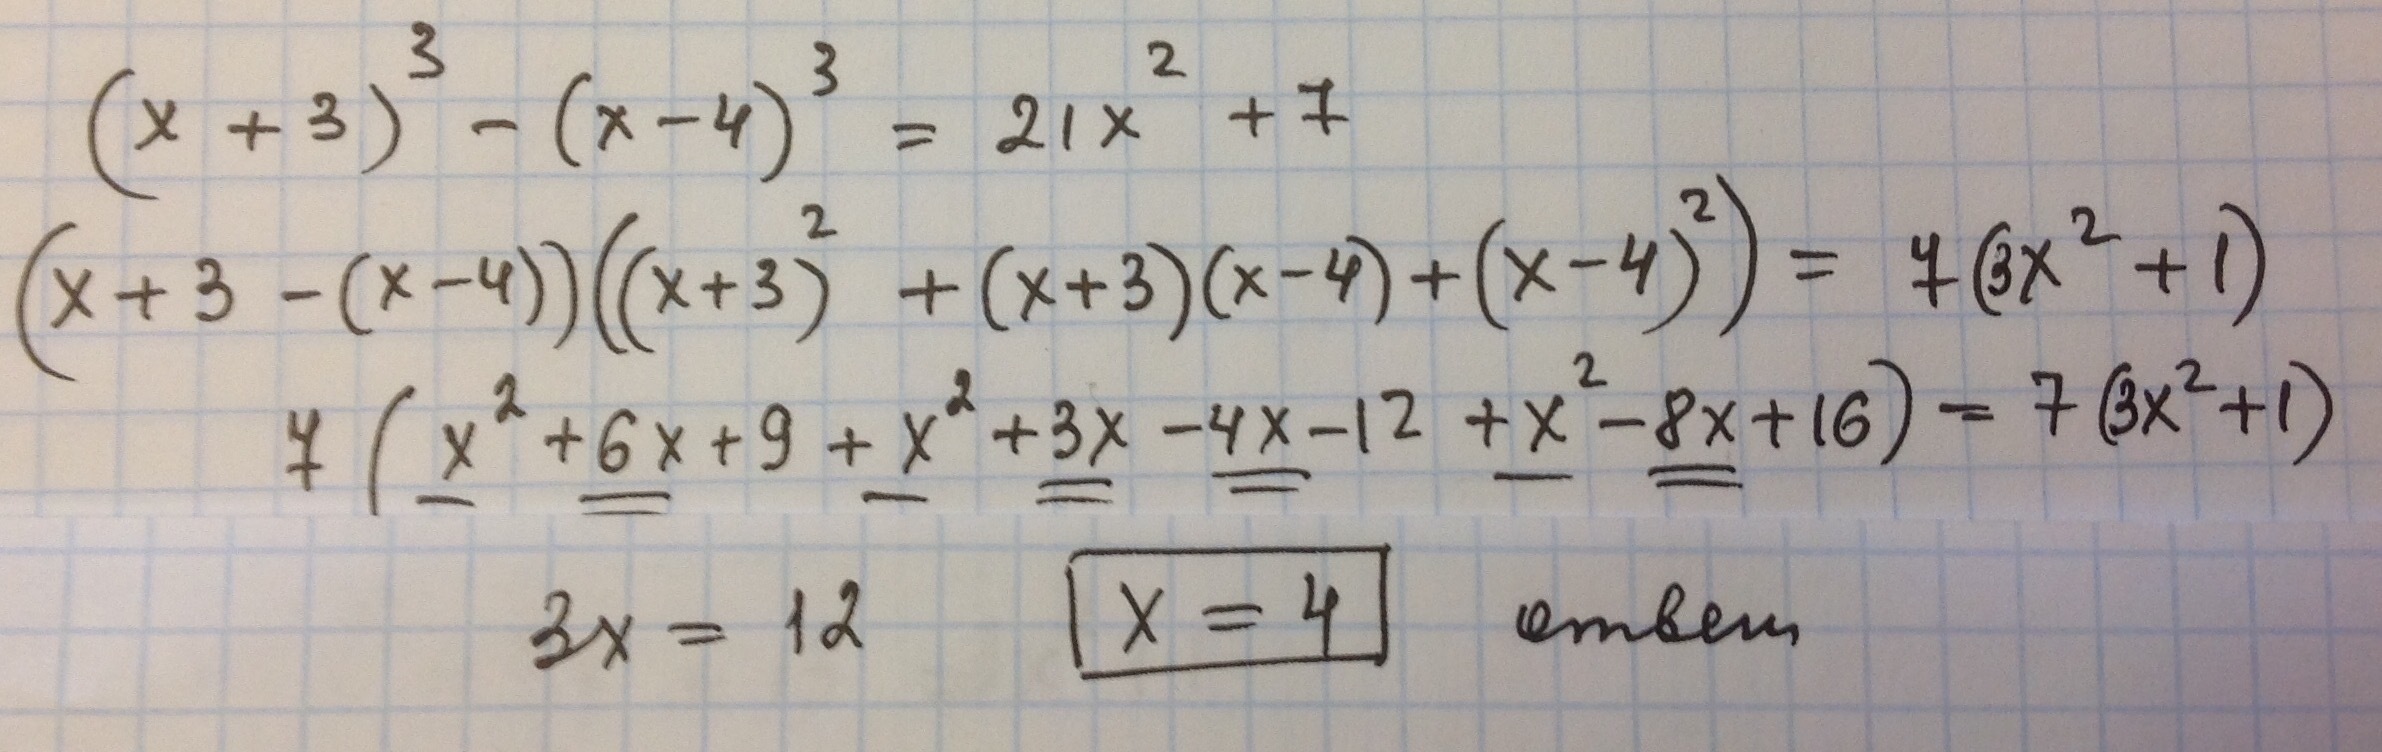 (x + 3)³ - (x - 4)³ = 21x² + 7
(x + 3 - (x - 4))((x + 3)² + (x + 3)(x - 4) + (x - 4)²) = 7(3x² + 1)
7(x² + 6x + 9 + x² + 3x - 4x - 12 + x² - 8x + 16) = 7(3x² + 1)
3x = 12 x = 4 ответ